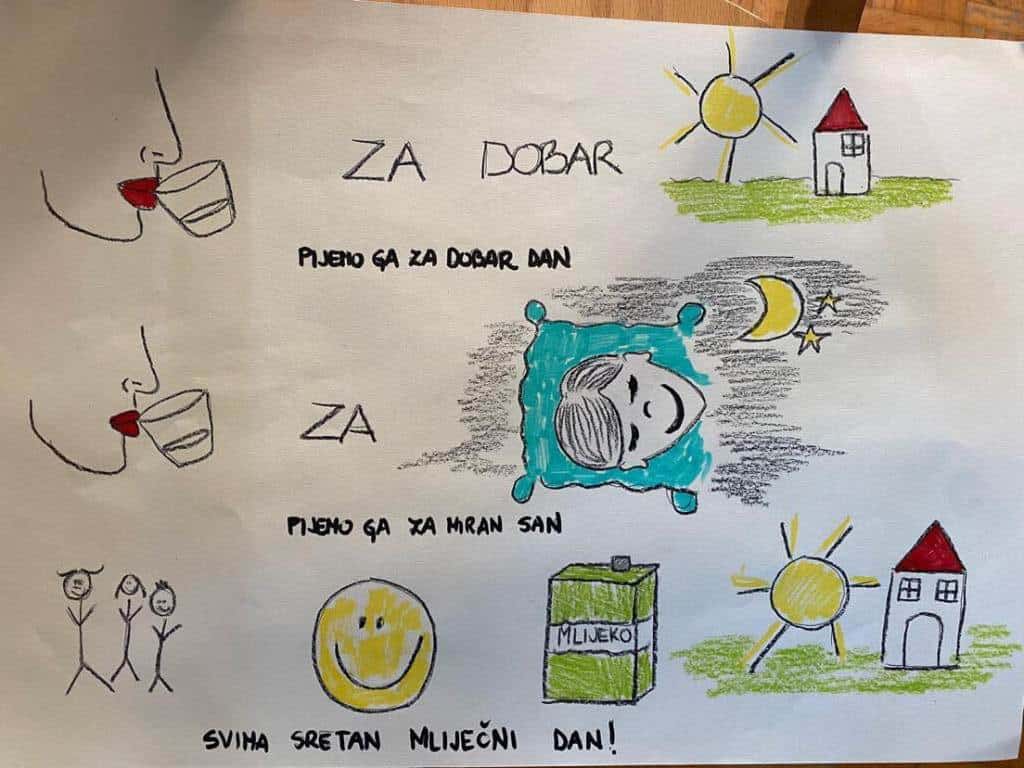 ZA DOBAR
PIJEMO GA ZA DOBAR DAN
ZA
PIJEMO GA ZA MIRAN SAN
MLIJEKO
SVIMA SRETAN MLIJEČNI DAN!